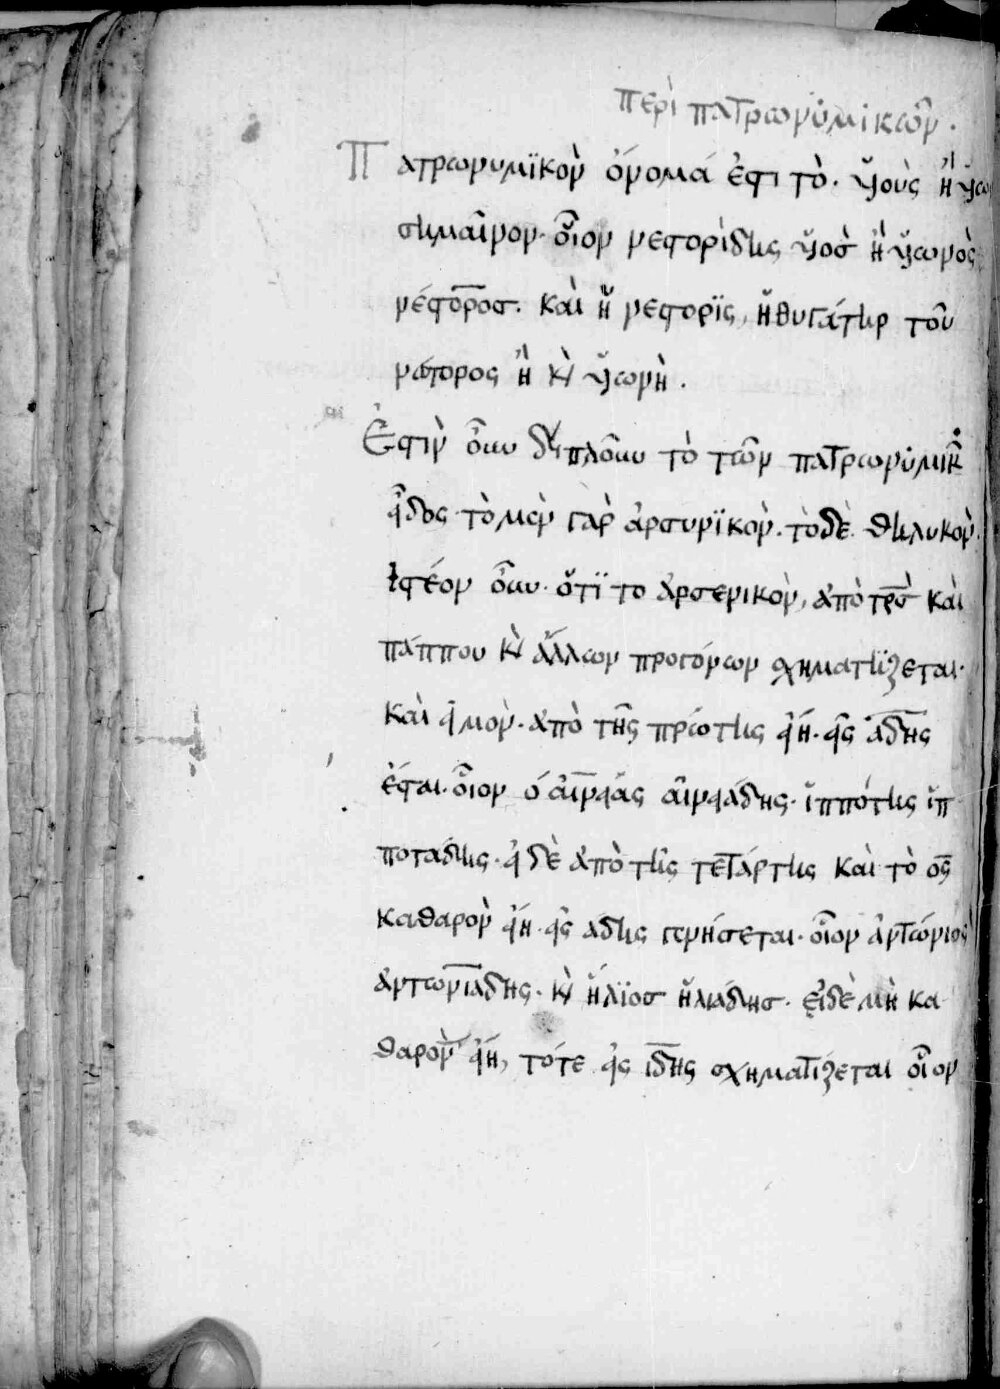 περὶ πατρωνὐμικῶν.
Πατρωνυμϊκὸν ὄνομά ἐστι τὸ. ὑοὺς ἢ ὑω
σημαῖνον· οἷον νεστορίδης ὑοσ ἢ ὑωνὸς
νέστοροσ. καὶ ἡ νεστορϊς, ἡ θυγάτηρ τοῦ
νέστορος ἢ κὶ ὑωνὴ.
Ἐστὶν οὖν δυπλοῦν τὸ τῶν πατρωνὐμικῶν
εἶδος τὸ μὲν γὰρ ἀρσυνϊκὸν. τὸ δὲ θηλυκὸν.
Ἰστέον οὖν· ὅτϊ το ἀρσενικὸν, ἀπὸ πρσ καὶ
πάππου κὶ ἄλλων προγόνων σχηματηΐζεται.
καὶ εἰ μὸν. ἀπὸ τῆς πρώτης εἴη. εἰς άδης
ἔσται. οἷον ὁ αἰνείας αἰνειάδης. ἱππότης ἱπ
ποταδης. εἰ δὲ ἀπὸ τῆς τετάρτης καὶ τὸ ος
καθαρὸν εἴη. εἰς αδης γενήσεται. οἷον ἀρτώνιος
ἀρτωνιαδης. κὶ ἥλϊοσ ἡλιάδησ. εἰδὲ μὴ κα
θαρὸν εἴη, τότε εἰς ιδης σχηματίζεται οἷον